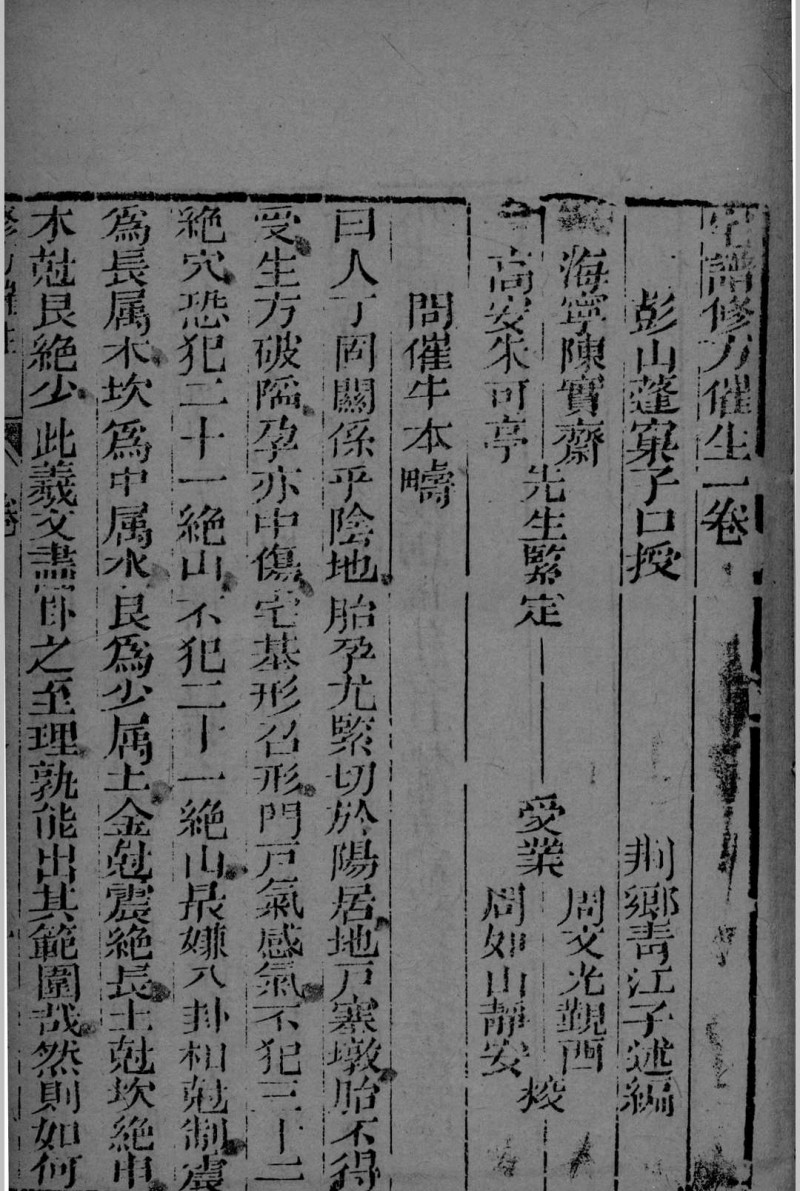 宅譜修方催生一卷
彭山蓬窠子口授 荆鄉青江子述編
海寧陳實齋
高安朱可亭
先生鑒定
受業
周文光覲酉
周如山靜安
校
問催生本疇
曰人丁固關係乎陰地胎孕尤緊切於陽居地戸塞墩胎不得
受生方破陷孕亦中傷宅基形召形門戸氣感氣不犯三十二
絶穴恐犯二十一絶山不犯二十一絶山最嫌八卦相尅制震
爲長属木坎爲中属水艮爲少属土金尅震絶長土尅坎絶中
木尅艮絶少此羲文畫卦之至理孰能出其範圍哉然則如何